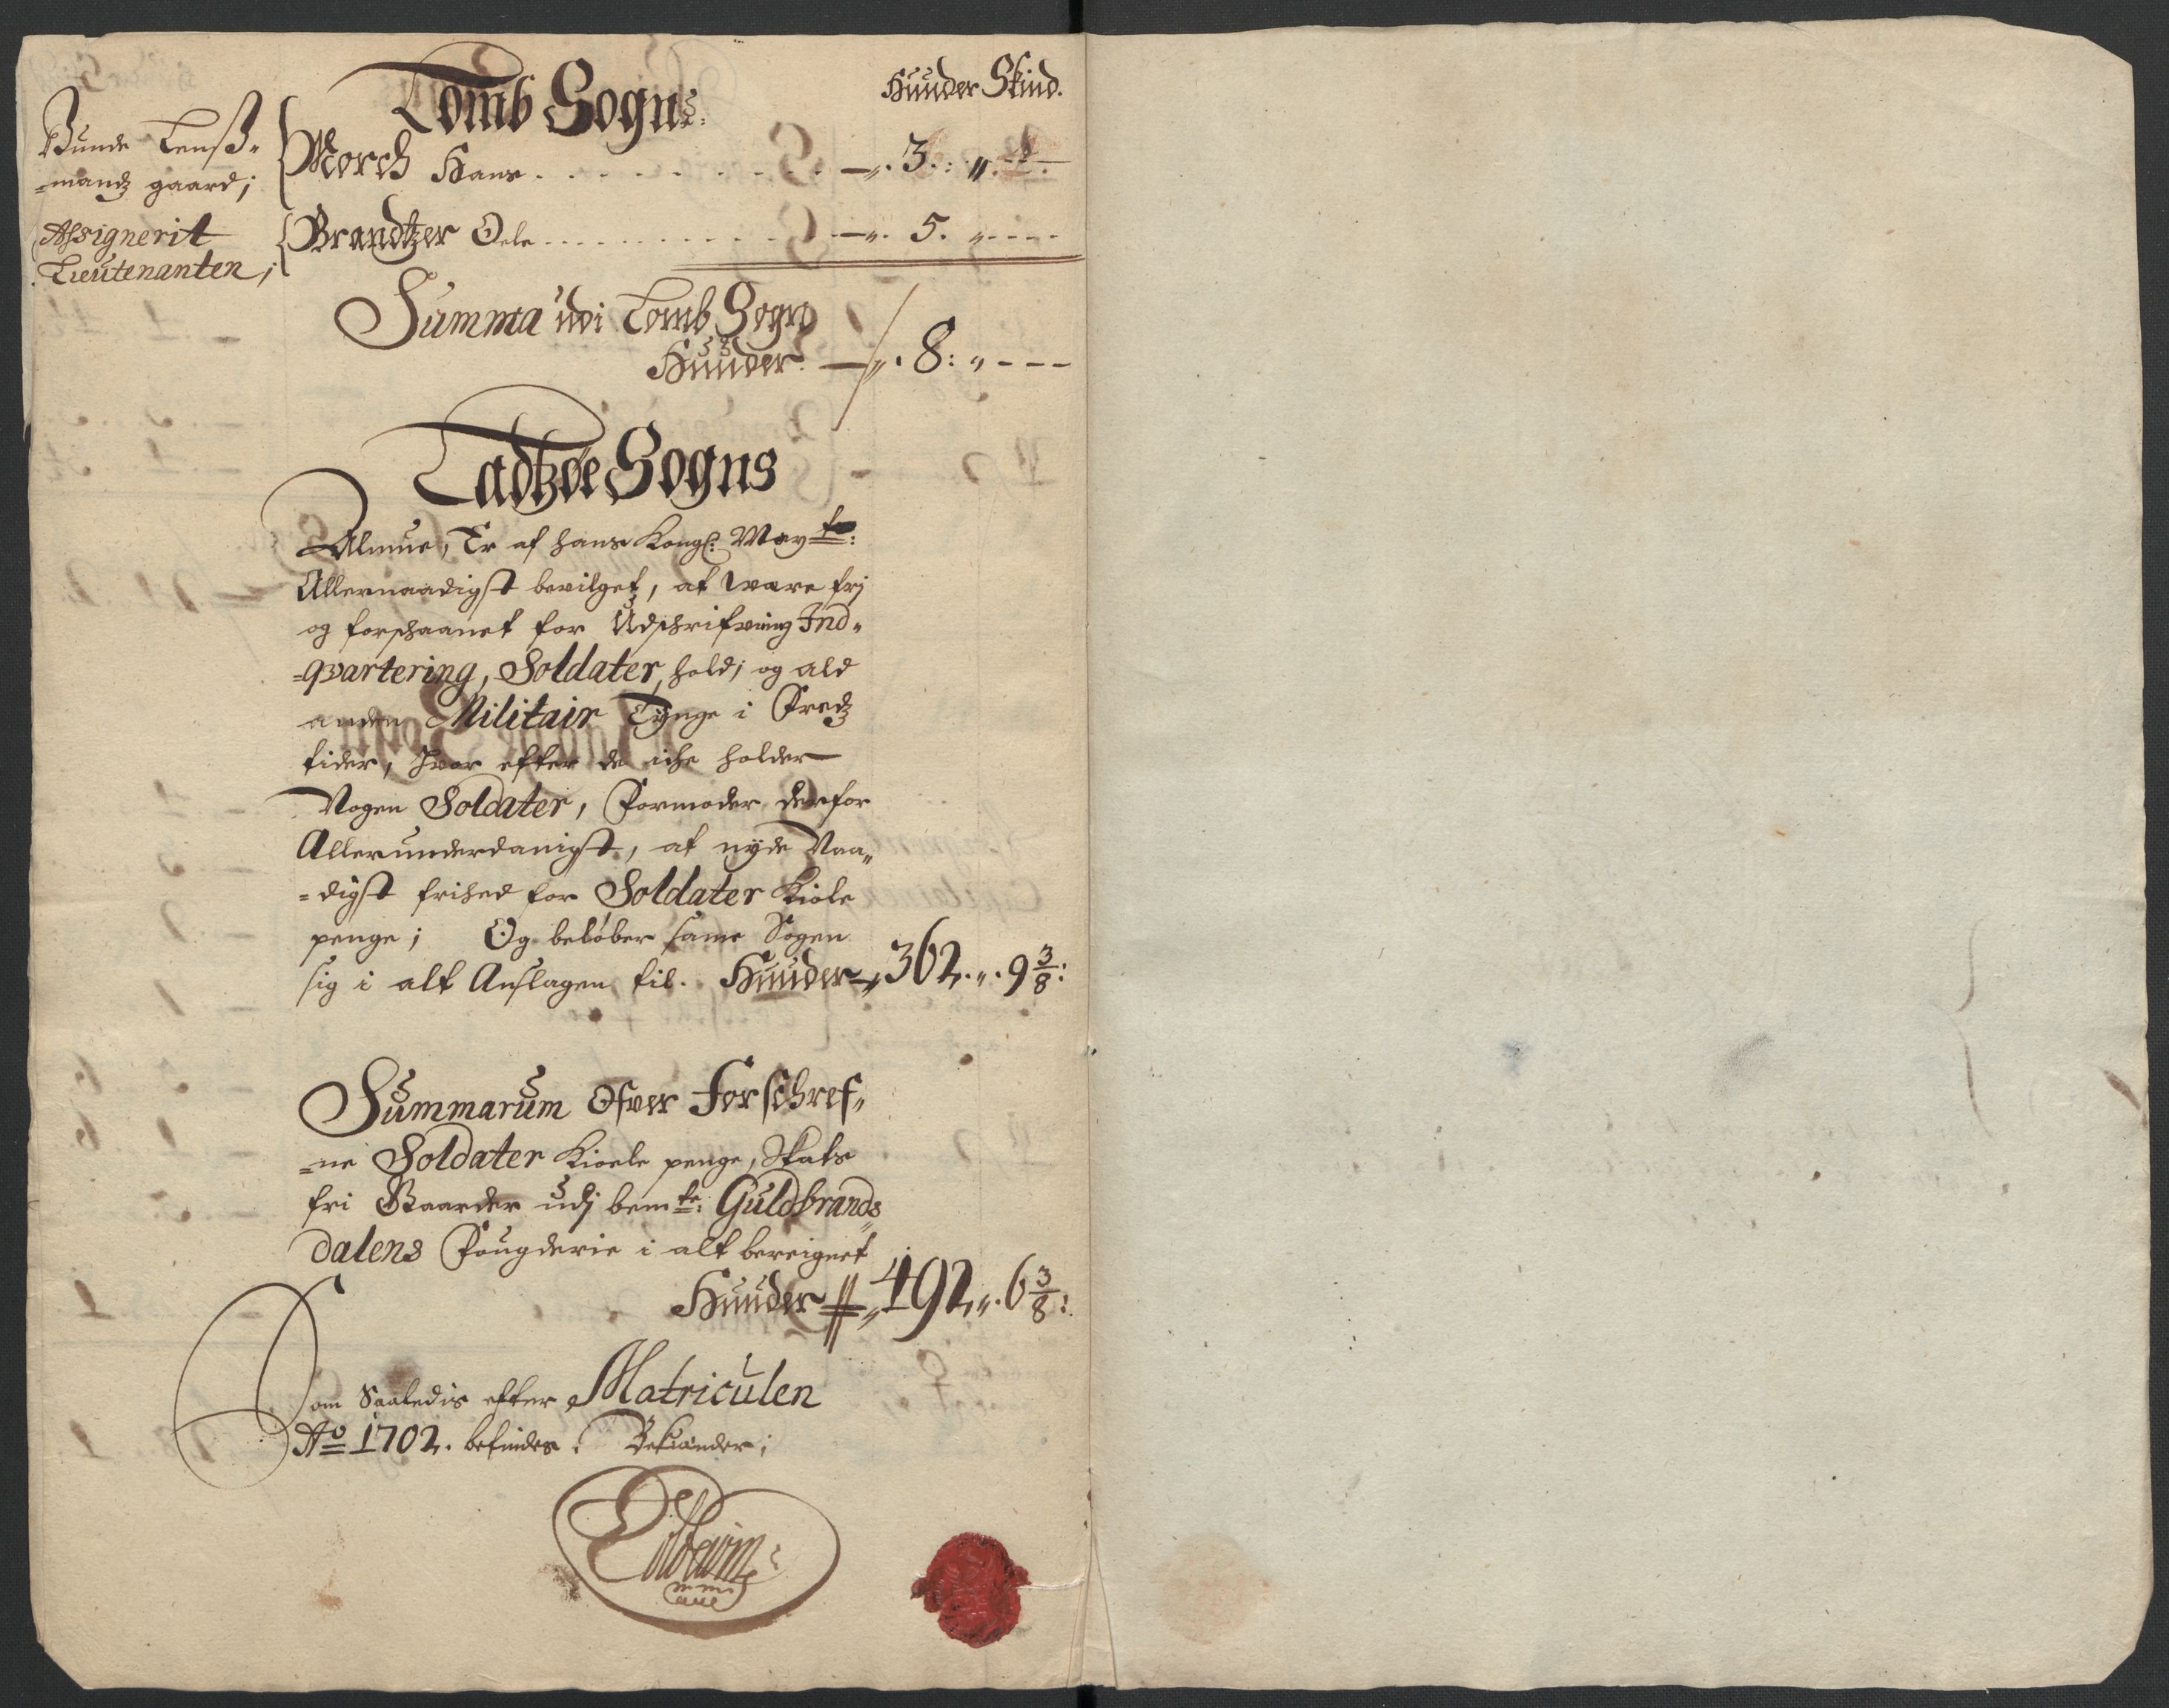 Lomb Sogn:
Huuder Skind.
Bunde Lenß-
=mandz gaard;
Morch Hans . . . . . . . . . 3. : „
Assignerit
Lieutenanten;
Brandtzer Oele . . . . . . . . . 5. „ - - -
Summa udi Lomb Sogn
Huuder. — „. 8: „ - - -
Ladtzøe Sogns
Almue, Er af hans Kongl: Mayte:
Allernaadigst bevilget, at være frj
og forschaanet for Udschrifning Ind-
=qvartering, Soldater, hold; og ald
anden Militair Tynge i Fredz
tider, Hvor efter de iche holder
Nogen Soldater, Formoder derfor
Allerunderdanigst, at nyde Naa„
=digst frihed for Soldater Kiole
penge; Og beløber same Sogen
sig i alt Anslagen til. Huuder — „ 362. „. 9 3/8:
Summarum Ofver Forschref„
=ne Soldater Kioele penge, Skats
fri Gaarder udj bemte: Guldbrands
dalens Fougderie i alt bereignet
Huuder „ 492 „. 6 3/8:
Som Saaledis efter Matriculen
Ao 1702. befindes. Bekiender;